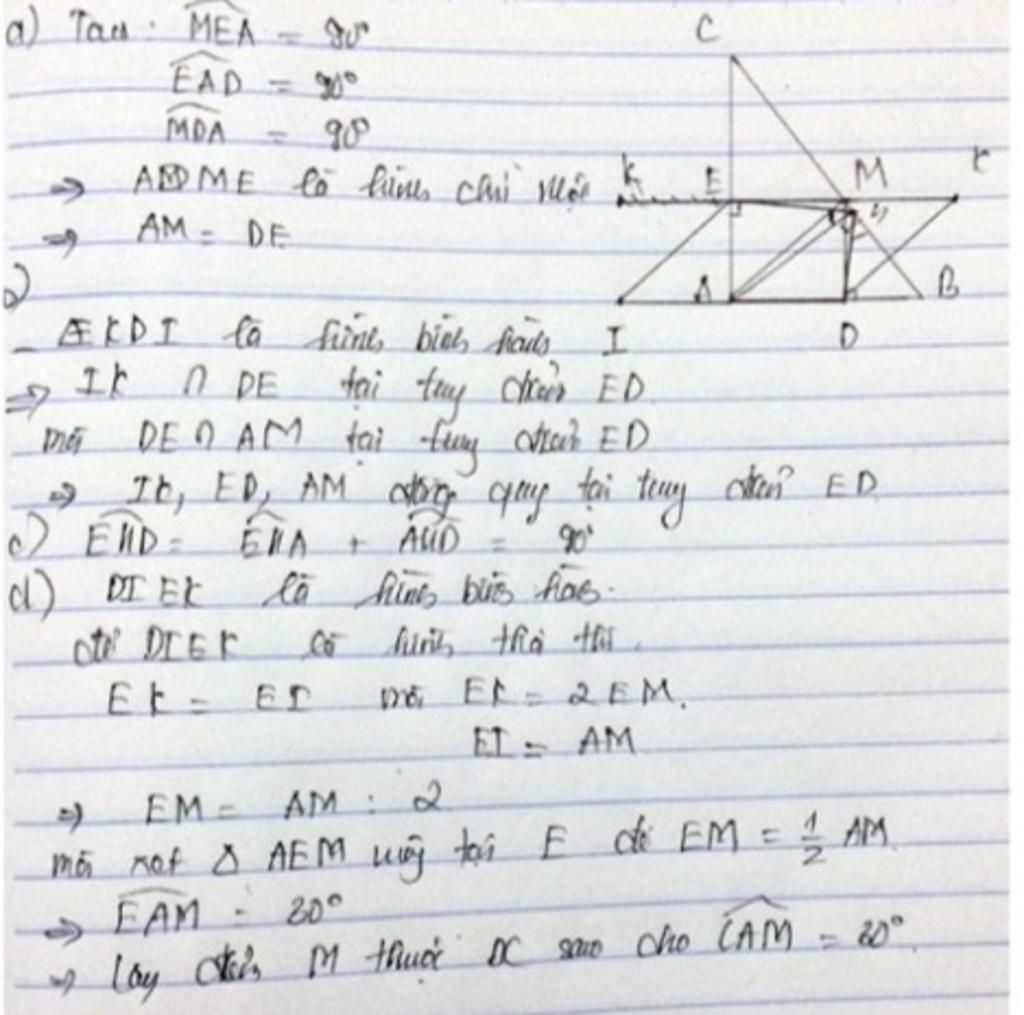 a) Ta có : MEA = 90°
EAD = 90°
MDA = 90°
=> ADME là hình chữ nhật
=> AM = DE
b)
- EKDI là hình bình hành
=> IK ∩ DE tại trung điểm ED
mà DE ∩ AM tại trung điểm ED
=> IK, ED, AM đồng quy tại trung điểm ED
c) EHD = EHA + AHD = 90°
d) DIEK là hình bình hành.
để DIEK là hình thoi thì.
EK = EI mà EK = 2EM.
EI = AM
=> EM = AM : 2
mà xét Δ AEM vuông tại E để EM = 1/2 AM.
=> EAM = 30°
=> lấy điểm M thuộc BC sao cho CAM = 30°.
C
K E M K
A B
I D